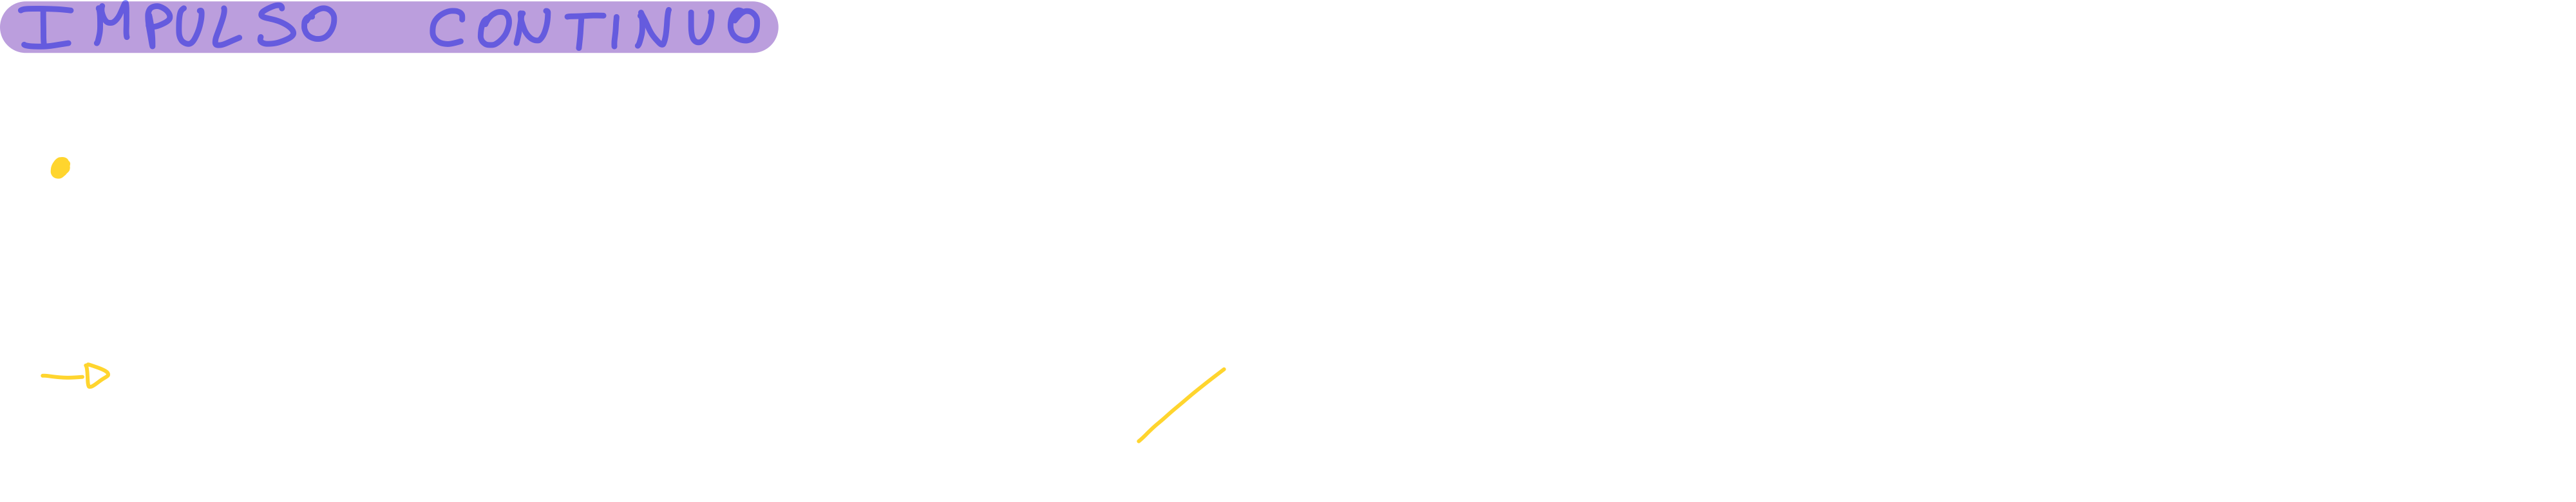 IMPULSO CONTINUO